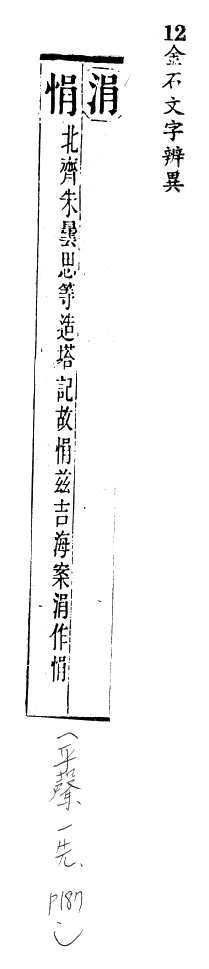 12金石文字辨異
涓
悁 北齊朱曇思等造塔記故悁兹吉海案涓作悁
(平聲、一先、P187)